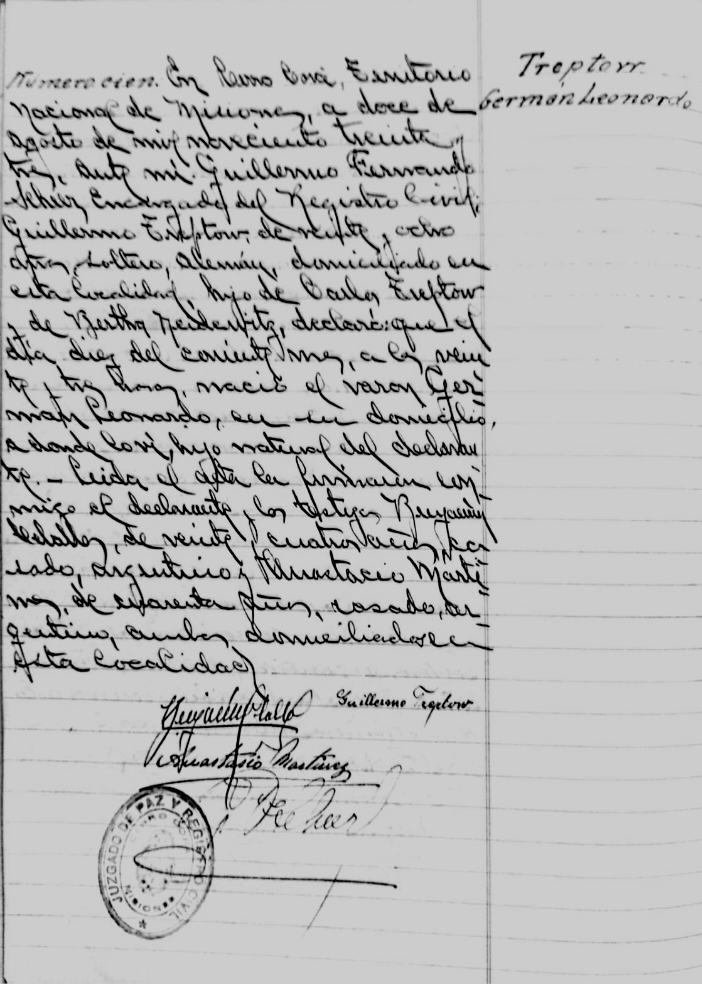 Treptow
Germán Leonardo
Numeracion. En Cerro Corá, Territorio
Nacional de Misiones, a doce de
Agosto de mil noveciento treinta y
tres, ante mí Guillermo Fernando
Encargado del Registro Civil;
Guillermo Treptow, de veinte y ocho
años, soltero, alemán, domiciliado en
esta localidad, hijo de Carlos Treptow
y de Bertha Neidewitz, declaró: que el
día diez del corriente mes, a las vein
te y tres horas, nació el varon Ger-
mán Leonardo, en su domicilio,
a donde lo vi, hijo natural del declaran
te. – Leida el acta la firmaron con-
migo el declarante y los testigos Benjamin
de veinte y cuatro años, ca
sado, argentino y Anastacio Marti-
nes, de cuarenta años, casado, ar-
gentino, ambos domiciliados en
esta localidad
Guillermo Treptow
Anastasio Martinez
JUZGADO DE PAZ Y REGISTRO CIVIL